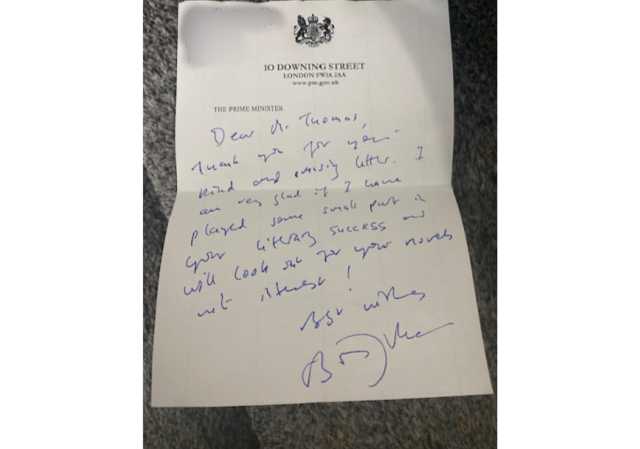 10 DOWNING STREET
LONDON SW1A 2AA
www.pm.gov.uk
THE PRIME MINISTER
Dear Mr Thomas,
Thank you for your
kind and amusing letter. I
am very glad if I have
played some small part in
your literary success and
will look out for your novels
with interest!
Best wishes